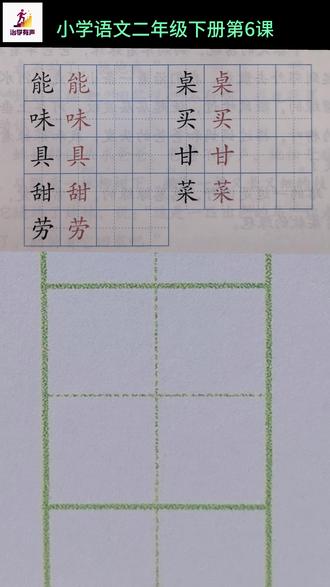 治学有声
小学语文二年级下册第6课
能 能 桌 桌
味 味 买 买
具 具 甘 甘
甜 甜 菜 菜
劳 劳